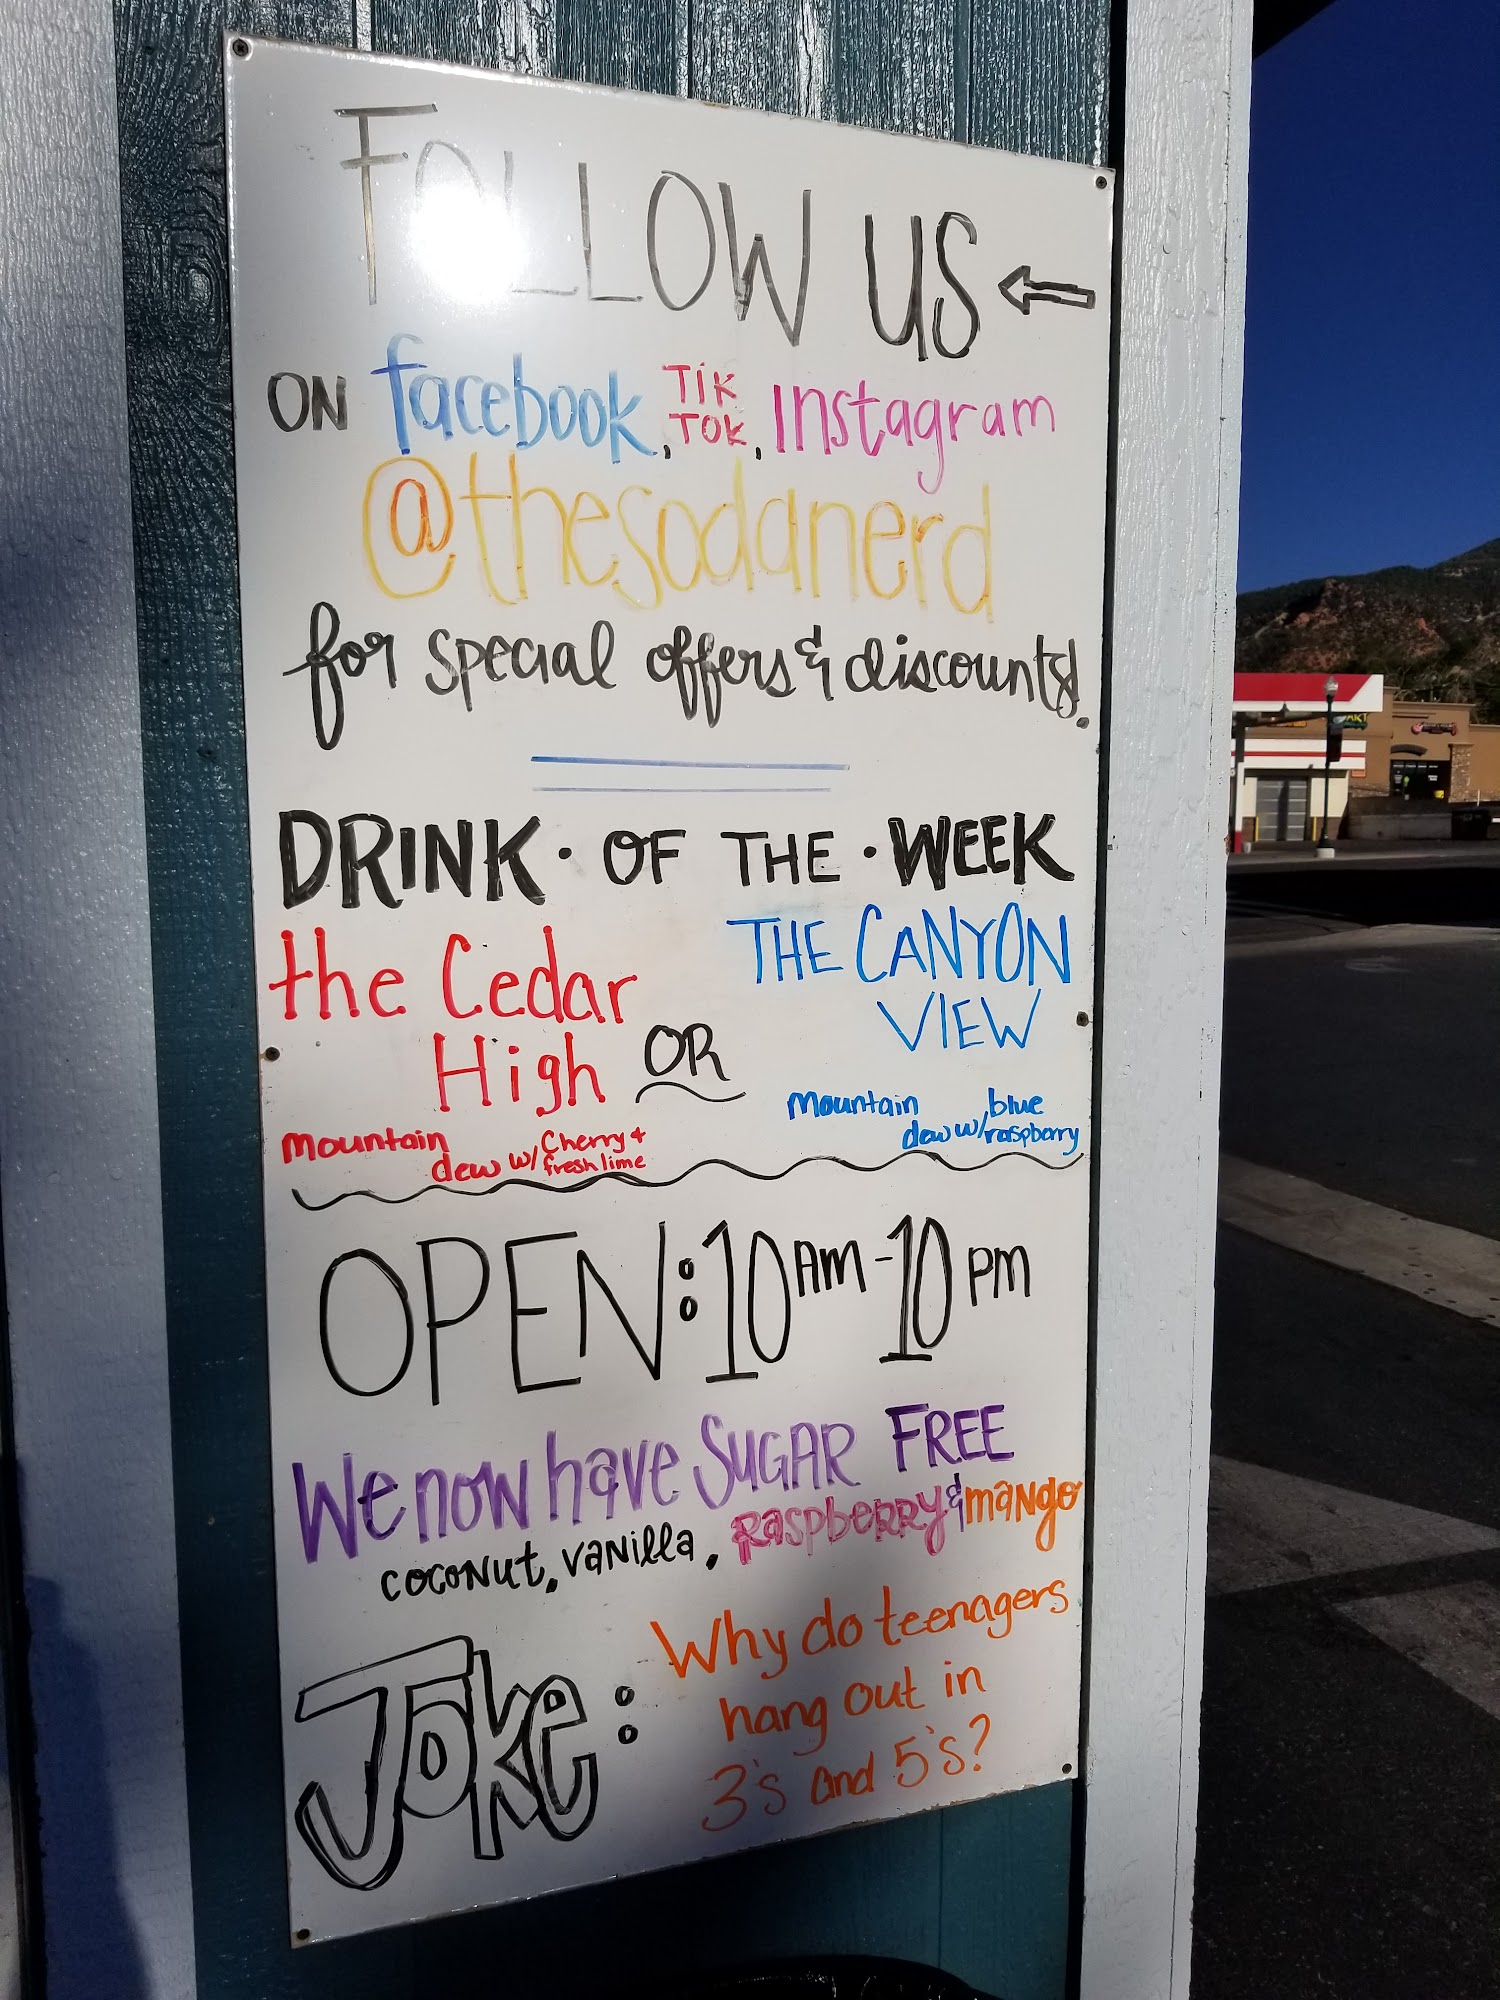 FOLLOW US
ON facebook, TIK TOK, Instagram
@thesodanerd
for special offers & discounts!
DRINK · OF THE · WEEK
the Cedar
High
OR
THE CANYON
VIEW
mountain
dew w/ cherry +
fresh lime
mountain
dew w/ blue
raspberry
OPEN: 10 AM - 10 PM
We now have SUGAR FREE
coconut, vanilla, raspberry & mango
JOKE:
Why do teenagers
hang out in
3's and 5's?